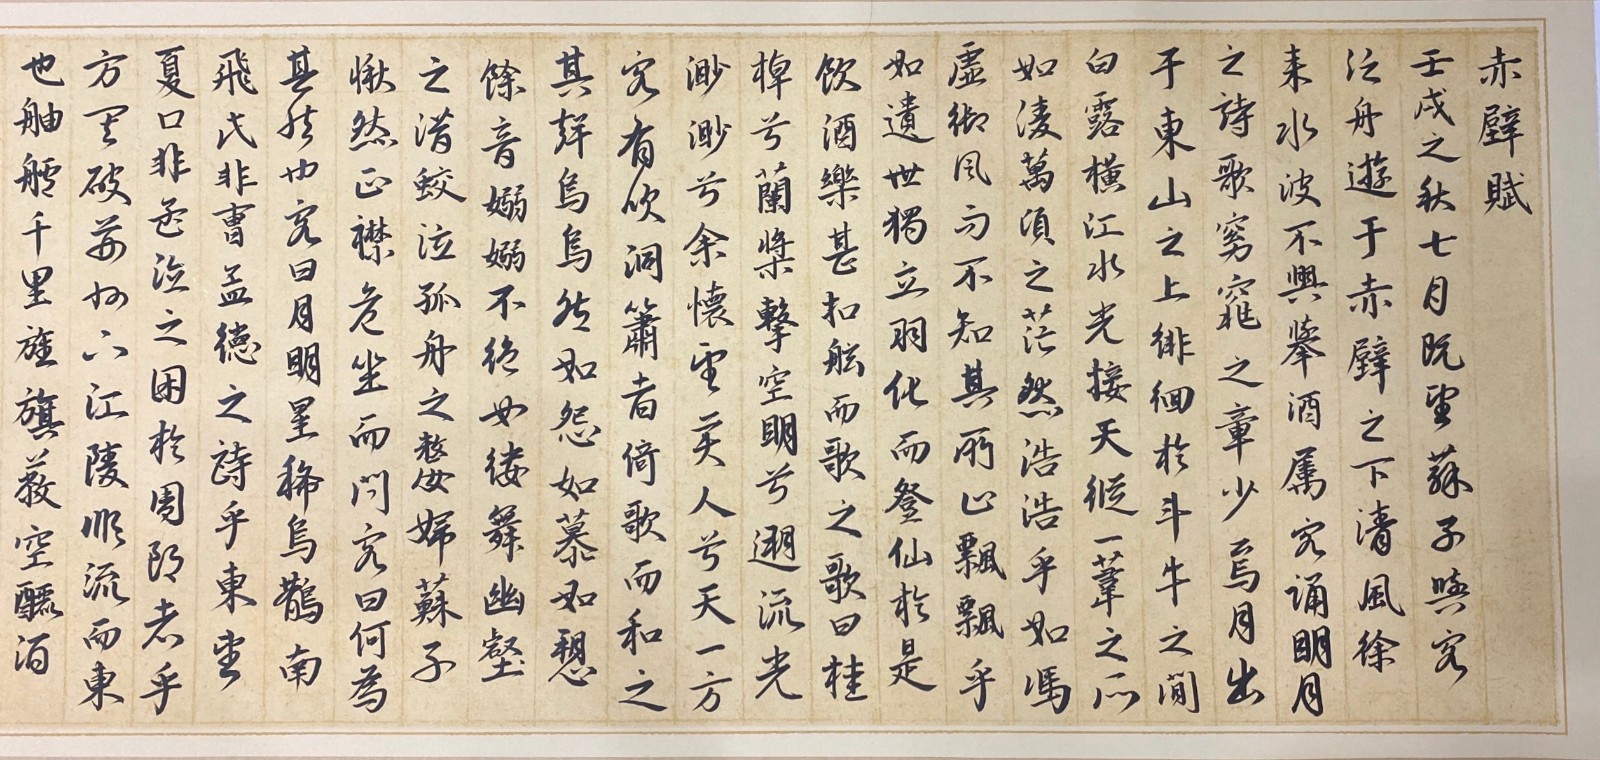 赤壁賦
壬戌之秋七月既望蘇子與客
泛舟遊于赤壁之下清風徐
來水波不興舉酒屬客誦明月
之詩歌窈窕之章少焉月出
于東山之上徘徊於斗牛之間
白露橫江水光接天縱一葦之所
如凌萬頃之茫然浩浩乎如馮
虛御風而不知其所止飄飄乎
如遺世獨立羽化而登仙於是
飲酒樂甚扣舷而歌之歌曰桂
棹兮蘭槳擊空明兮遡流光
渺渺兮余懷望美人兮天一方
客有吹洞簫者倚歌而和之
其聲烏烏然如怨如慕如愬
餘音嫋嫋不絕如縷舞幽壑
之潛蛟泣孤舟之嫠婦蘇子
愀然正襟危坐而問客曰何為
其然也客曰月明星稀烏鵲南
飛此非曹孟德之詩乎東望
夏口非孟德之困於周郎者乎
方其破荊州下江陵順流而東
也舳艫千里旌旗蔽空釃酒